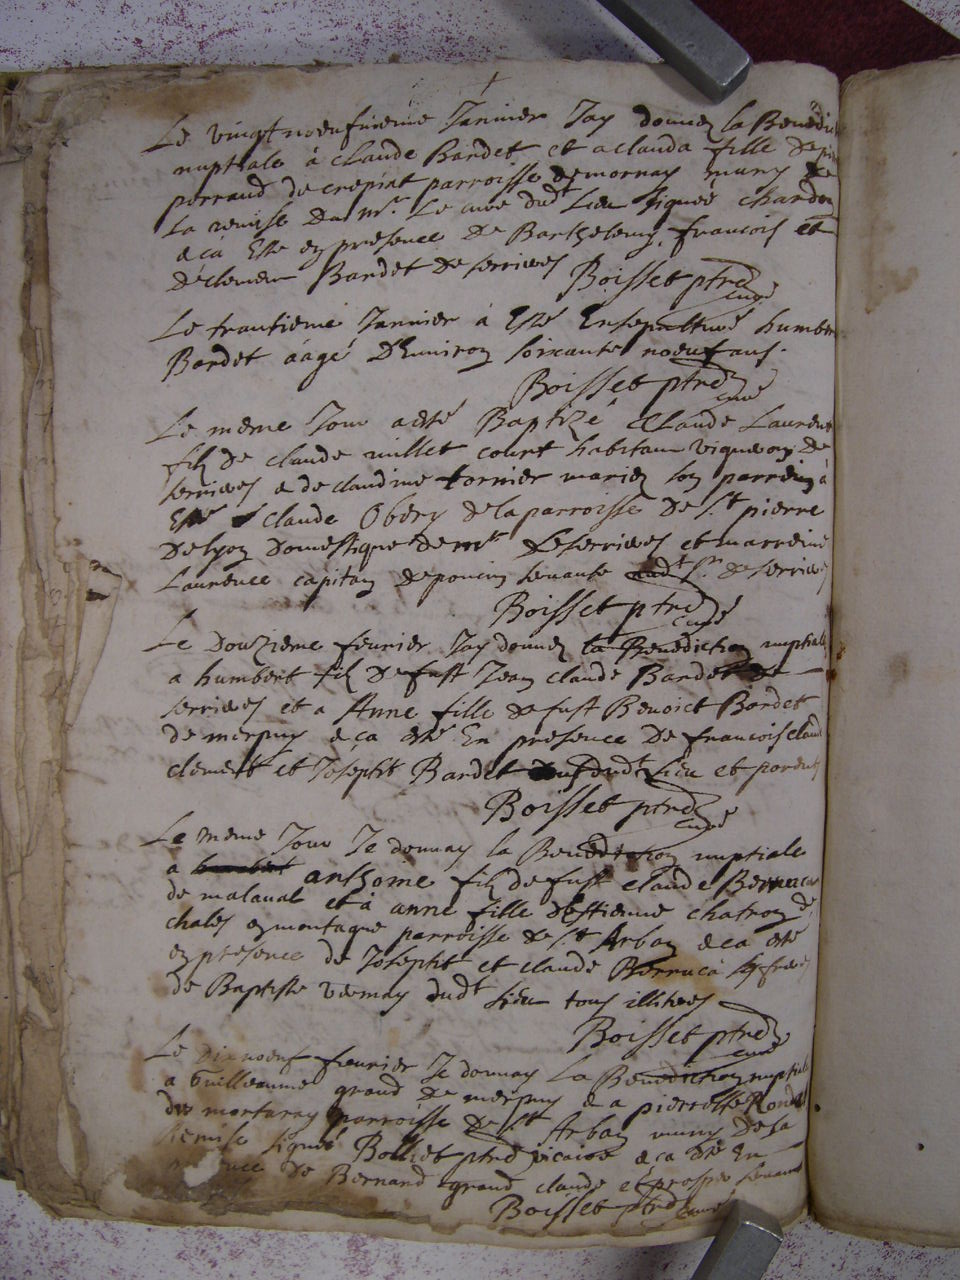 Le vingt noeufvieme Janvier Jay donnez la Benedic
nuptiale à Claude Bardet et a Clauda fille de
perraud de crepiat parroisse de mornay muny de
la remise du mr. Le curé dudt Lieu signeé chardon
e ça Esté en presence de Barthelemy, francois et
de clement Bardet de serrieres Boisset ptre
curé
Le trantieme Janvier à Esté Ensepulturé humber
Bardet áagé D'Environ soixante noeuf ans.
Boisset ptre
curé
Le meme Jour a esté Baptizé Claude Laurent
filz de claude millet court habitant vigneron de
serrieres e de claudine tornier mariez son parrein à
Esté Claude Obery de la parroisse De St pierre
De lyon Domestique de mr De serrieres et marreine
Laurence capitan de poncin servante dudt Sr. de serrieres
Boisset ptre
curé
Le Douzieme fevrier Jay donnez la Benediction nuptiale
a humbert filz De fust Jean claude Bardet de
serrieres et a Anne fille de fust Benoict Bardet
de merpuy e ça esté En presence De francois claud
clement et Joseph Bardet dudt Lieu et parents
Boisset ptre
curé
Le meme Jour Je donnay la Benediction nuptiale
a anthoine filz de fust claude Berruca
de malaval et à anne fille d'Estienne chatron de
chales en montagne parroisse de St Arban e ca esté
en presence de Joseph et claude Berruca ses freres
de Baptiste vernay dudt Lieu tous illiteres
Boisset ptre
curé
Le Dixnoeuf fevrier Je donnay la Benediction nuptiale
a Guilleaume grand de merpuy e a pierrette Rondet
de montaray parroisse de St Arban muny De la
Remise signeé Bolliet ptre vicaire e ca esté En
de Bernand grand claude et prosper servant
Boisset ptre curé